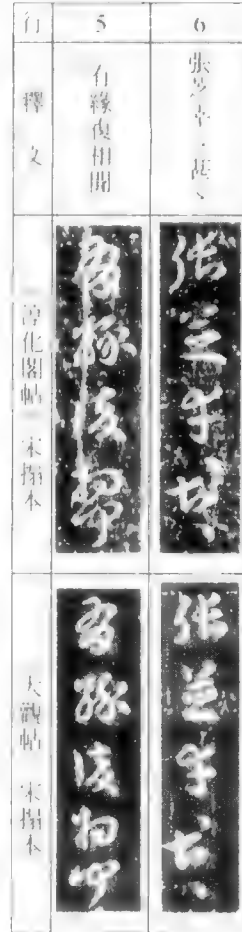 行 5 6
釋文 有緣復相聞 張芝幸、甚、
淳化閣帖 宋搨本
大觀帖 宋搨本